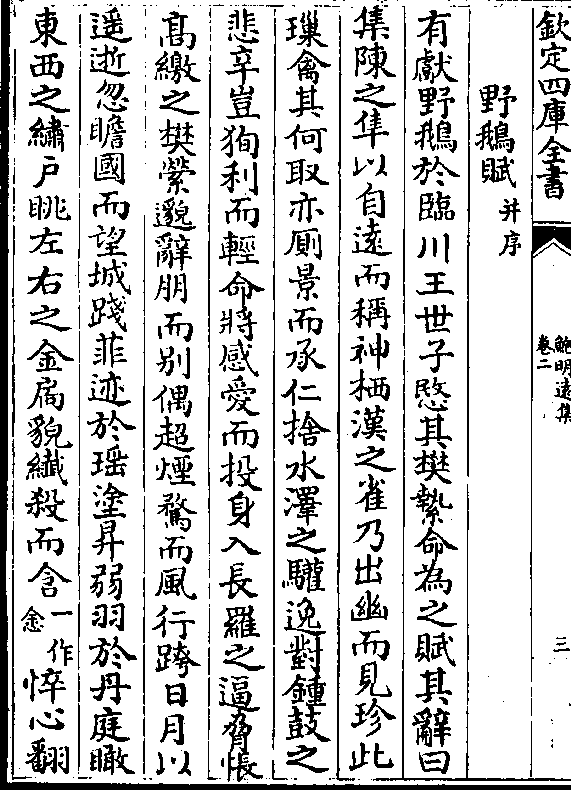 欽定四庫全書
鮑明遠集
卷二
三
野鵝賦并序
有獻野鵝於臨川王世子愍其樊縶命為之賦其辭曰
集陳之隼以自遠而稱神栖漢之雀乃出幽而見珍此
璅禽其何取亦厠景而承仁捨水澤之驩逸對鍾鼓之
悲辛豈狥利而輕命將感愛而投身入長羅之逼脅悵
髙繳之樊縈邈辭朋而别偶超煙鶩而風行跨日月以
遥逝忽瞻國而望城踐菲迹於瑶塗昇弱羽於丹庭瞰
東西之繡戶眺左右之金扄貌纎殺而含一作悆悴心翻